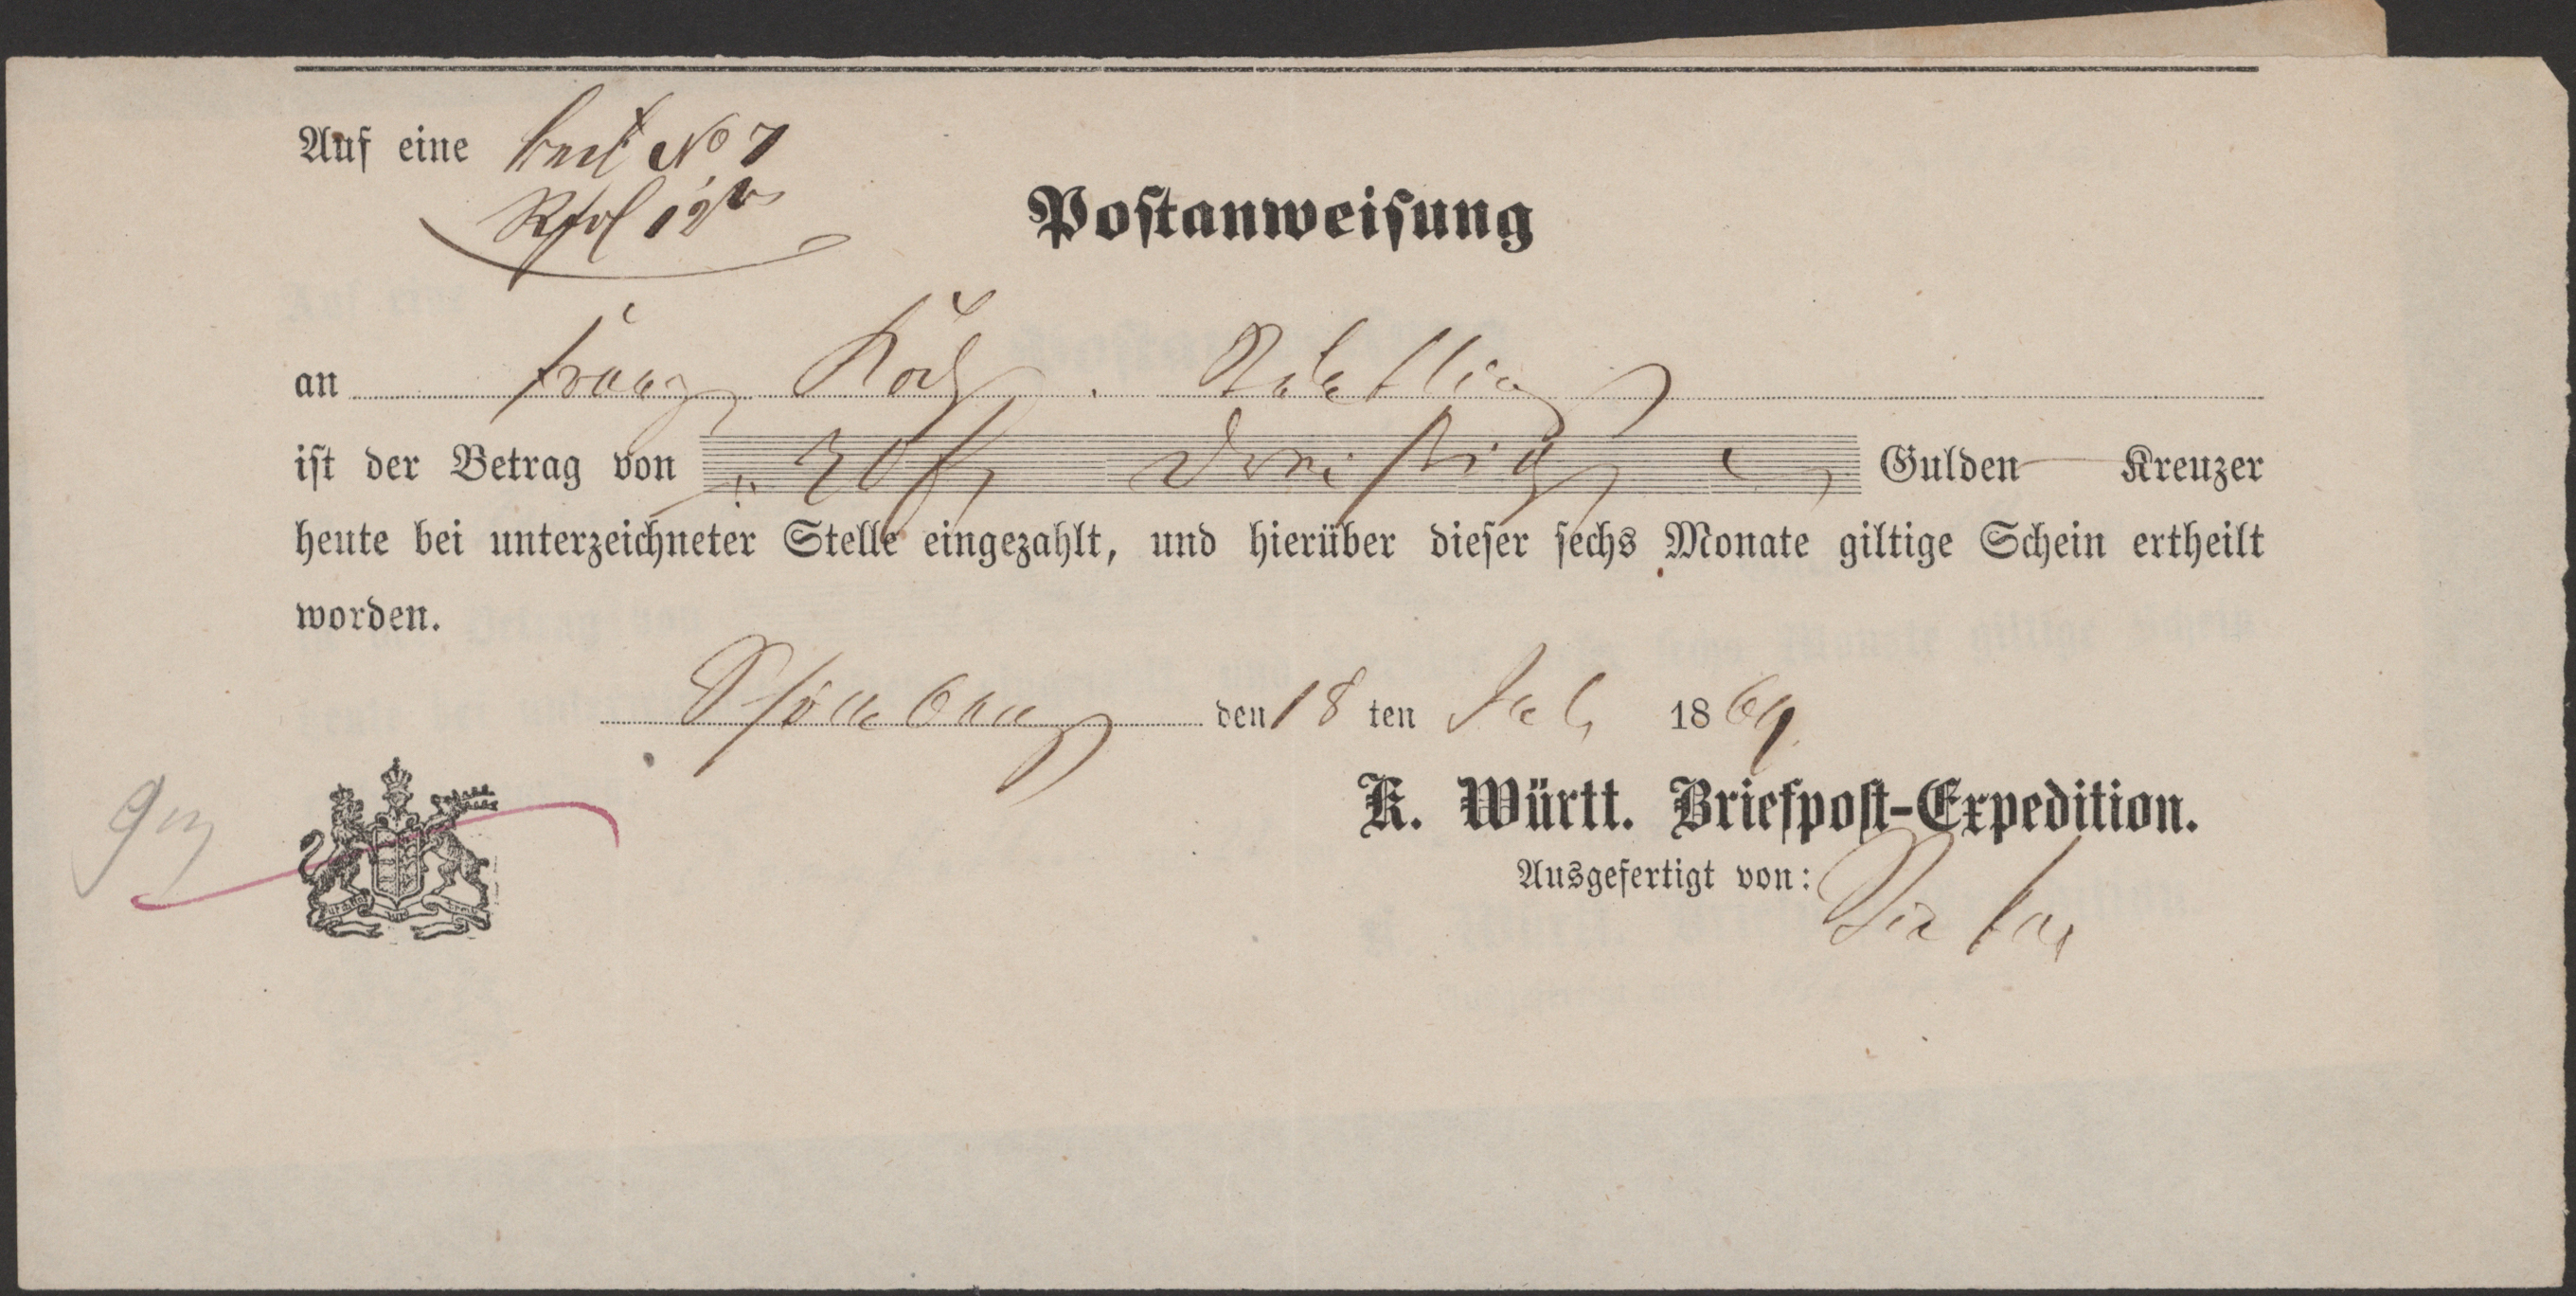 Auf eine No 7
Postanweisung
an Franz Koch.
ist der Betrag von 30 f dreißig Gulden — Kreuzer
heute bei unterzeichneter Stelle eingezahlt, und hierüber dieser sechs Monate giltige Schein ertheilt
worden.
Schömberg den 18 ten Juli 1869
K. Württ. Briefpost-Expedition.
Ausgefertigt von: